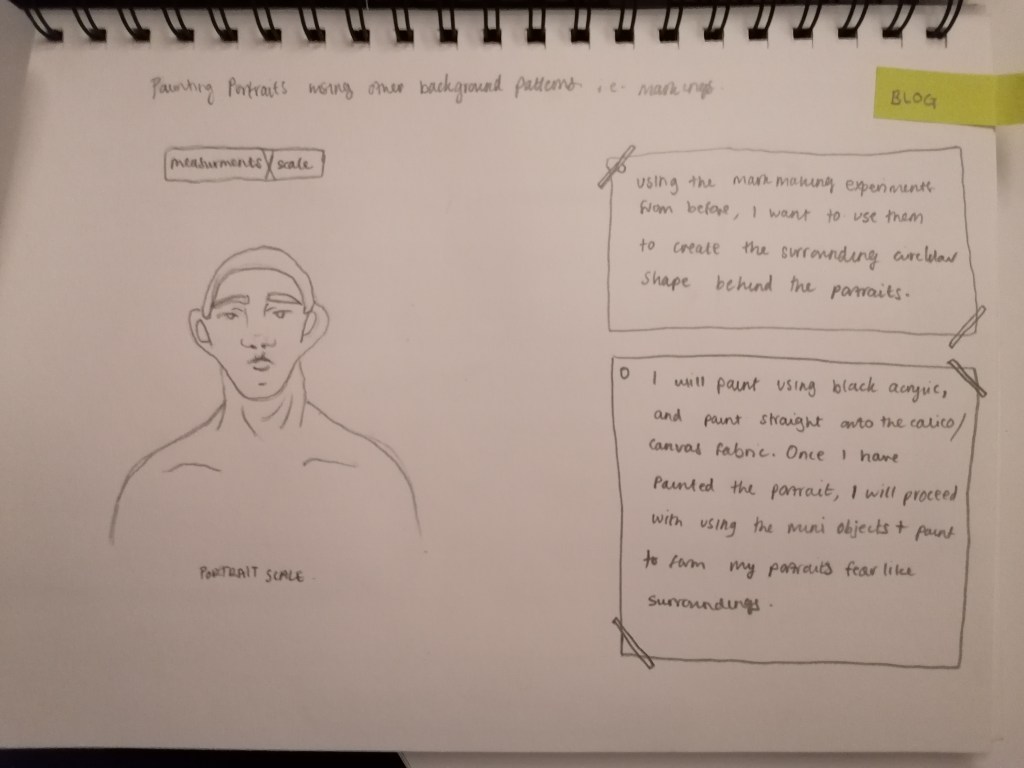 Painting Portraits using other background patterns i.e. markings.
BLOG
measurments / scale
using the mark making experiments
from before, I want to use them
to create the surrounding circular
shape behind the portraits.
I will paint using black acrylic,
and paint straight onto the calico/
canvas fabric. Once I have
painted the portrait, I will proceed
with using the mini objects + paint
to form my portraits fear like
surroundings.
PORTRAIT SCALE.